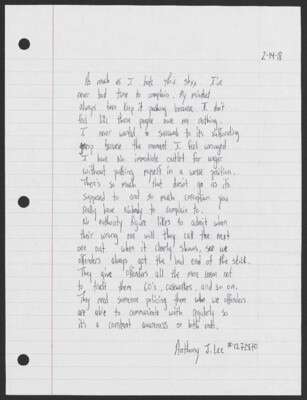 2-14-18
As much as I hate this shyt I've
never had time to complain. My mindset
always been keep it pushing because I don't
feel like these people owe me nothing.
I never wanted to succumb to its suffocating
grip because the moment I feel wronged
I have no immediate outlet for anger
without putting myself in a worse position.
There's so much that doesn't go as its
supposed to and so much corruption you
really have Nobody to complain to.
No authority figure likes to admit when
their wrong nor will they call the next
one out when it clearly shows, see we
offenders always get the bad end of the stick.
They give offenders all the more reason not
to trust them CO's, caseworkers, and so on.
They need someone policing them who we offenders
are able to communicate with regularly so
it's a constant awareness on both ends.
Anthony J. Lee #1272870